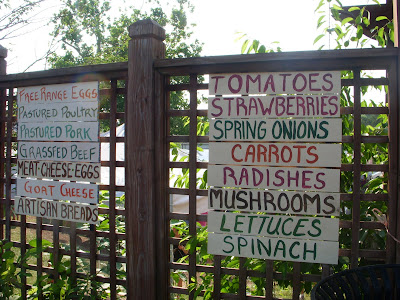 FREE RANGE EGGS
PASTURED POULTRY
PASTURED PORK
GRASSFED BEEF
MEAT·CHEESE·EGGS
GOAT CHEESE
ARTISAN BREADS
TOMATOES
STRAWBERRIES
SPRING ONIONS
CARROTS
RADISHES
MUSHROOMS
LETTUCES
SPINACH